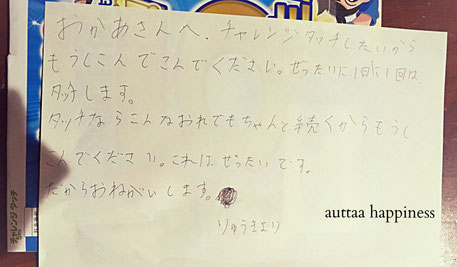 おかあさんへ、チャレンジタッチしたいから
もうしこんでこんでください。ぜったいに1日に1回は
タッチします。
タッチならこんなおれでもちゃんと続くからもうし
こんでください。これは、ぜったいです。
だからおねがいします。
りゅうまより
auttaa happiness